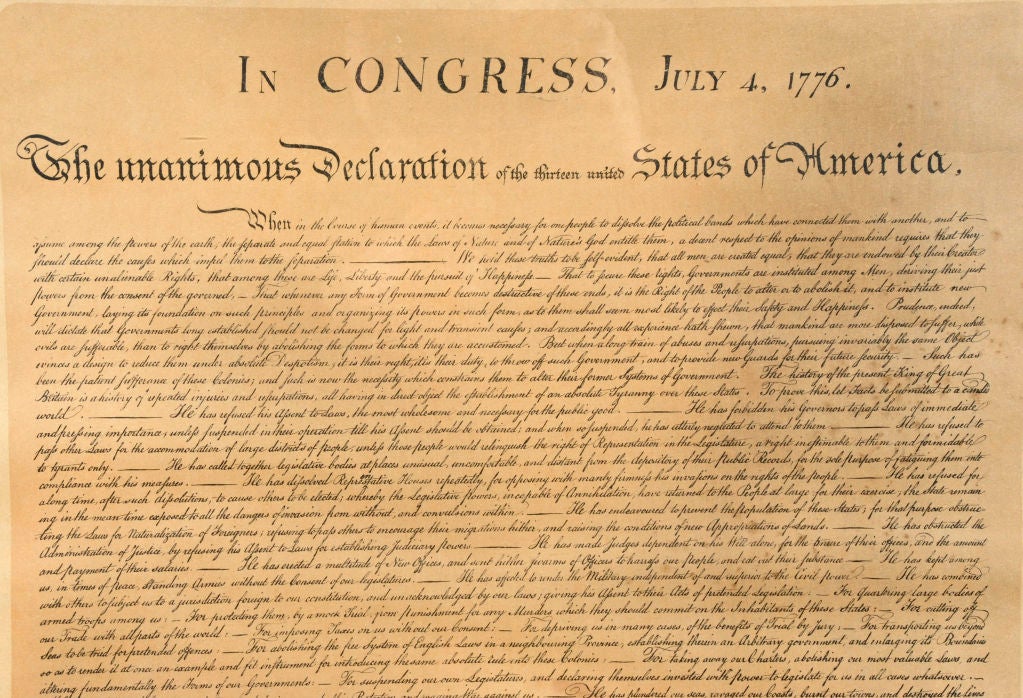 IN CONGRESS, JULY 4, 1776.
The unanimous Declaration of the thirteen united States of America,
When in the Course of human events, it becomes necessary for one people to dissolve the political bands which have connected them with another, and to
assume among the powers of the earth, the separate and equal station to which the Laws of Nature and of Nature's God entitle them, a decent respect to the opinions of mankind requires that they
should declare the causes which impel them to the separation. ——— We hold these truths to be self-evident, that all men are created equal, that they are endowed by their Creator
with certain unalienable Rights, that among these are Life, Liberty and the pursuit of Happiness.— That to secure these rights, Governments are instituted among Men, deriving their just
powers from the consent of the governed, — That whenever any Form of Government becomes destructive of these ends, it is the Right of the People to alter or to abolish it, and to institute new
Government, laying its foundation on such principles and organizing its powers in such form, as to them shall seem most likely to effect their Safety and Happiness. Prudence, indeed,
will dictate that Governments long established should not be changed for light and transient causes; and accordingly all experience hath shewn, that mankind are more disposed to suffer, while
evils are sufferable, than to right themselves by abolishing the forms to which they are accustomed. But when a long train of abuses and usurpations, pursuing invariably the same Object
evinces a design to reduce them under absolute Despotism, it is their right, it is their duty, to throw off such Government, and to provide new Guards for their future security. — Such has
been the patient sufferance of these Colonies; and such is now the necessity which constrains them to alter their former Systems of Government. The history of the present King of Great
Britain is a history of repeated injuries and usurpations, all having in direct object the establishment of an absolute Tyranny over these States. To prove this, let Facts be submitted to a candid
world. ——— He has refused his Assent to Laws, the most wholesome and necessary for the public good. ——— He has forbidden his Governors to pass Laws of immediate
and pressing importance, unless suspended in their operation till his Assent should be obtained; and when so suspended, he has utterly neglected to attend to them ——— He has refused to
pass other Laws for the accommodation of large districts of people, unless those people would relinquish the right of Representation in the Legislature, a right inestimable to them and formidable
to tyrants only. ——— He has called together legislative bodies at places unusual, uncomfortable, and distant from the depository of their Public Records, for the sole purpose of fatiguing them into
compliance with his measures. ——— He has dissolved Representative Houses repeatedly, for opposing with manly firmness his invasions on the rights of the people. ——— He has refused for
a long time, after such dissolutions, to cause others to be elected; whereby the Legislative powers, incapable of Annihilation, have returned to the People at large for their exercise; the State remain
ing in the mean time exposed to all the dangers of invasion from without, and convulsions within. ——— He has endeavoured to prevent the population of these States; for that purpose obstruc
ting the Laws for Naturalization of Foreigners; refusing to pass others to encourage their migrations hither, and raising the conditions of new Appropriations of Lands. ——— He has obstructed the
Administration of Justice, by refusing his Assent to Laws for establishing Judiciary powers. ——— He has made Judges dependent on his Will alone, for the tenure of their offices, and the amount
and payment of their salaries. ——— He has erected a multitude of New Offices, and sent hither swarms of Officers to harrass our people, and eat out their substance. — He has kept among
us, in times of peace, Standing Armies without the Consent of our legislatures. ——— He has affected to render the Military independent of and superior to the Civil power. ——— He has combined
with others to subject us to a jurisdiction foreign to our constitution, and unacknowledged by our laws; giving his Assent to their Acts of pretended Legislation: — For Quartering large bodies of
armed troops among us: — For protecting them, by a mock Trial, from punishment for any Murders which they should commit on the Inhabitants of these States: — For cutting off
our Trade with all parts of the world: — For imposing Taxes on us without our Consent: — For depriving us in many cases, of the benefits of Trial by jury: — For transporting us beyond
Seas to be tried for pretended offences: — For abolishing the free System of English Laws in a neighbouring Province, establishing therein an Arbitrary government, and enlarging its Boundaries
so as to render it at once an example and fit instrument for introducing the same absolute rule into these Colonies: — For taking away our Charters, abolishing our most valuable Laws, and
altering fundamentally the Forms of our Governments: — For suspending our own Legislatures, and declaring themselves invested with power to legislate for us in all cases whatsoever: —
against us. — He has plundered our seas, ravaged our Coasts, burnt our towns, and destroyed the lives